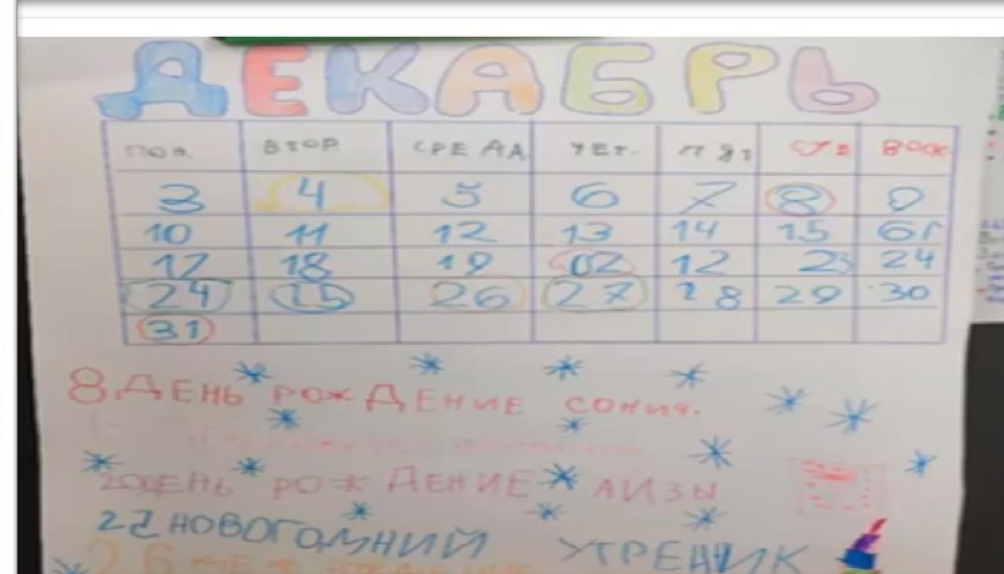 ДЕКАБРЬ
ПОН. ВТОР СРЕДА ЧЕТ. ПЯТ СУБ ВОСК
3 4 5 6 7 8 9
10 11 12 13 14 15 61
17 18 19 02 12 23 24
24 25 26 27 28 29 30
31
8. ДЕНЬ РОЖДЕНИЕ СОНИЧ.
20 ДЕНЬ РОЖДЕНИЕ ЛИЗЫ
27 НОВОГОМНИЙ УТРЕНИК
26